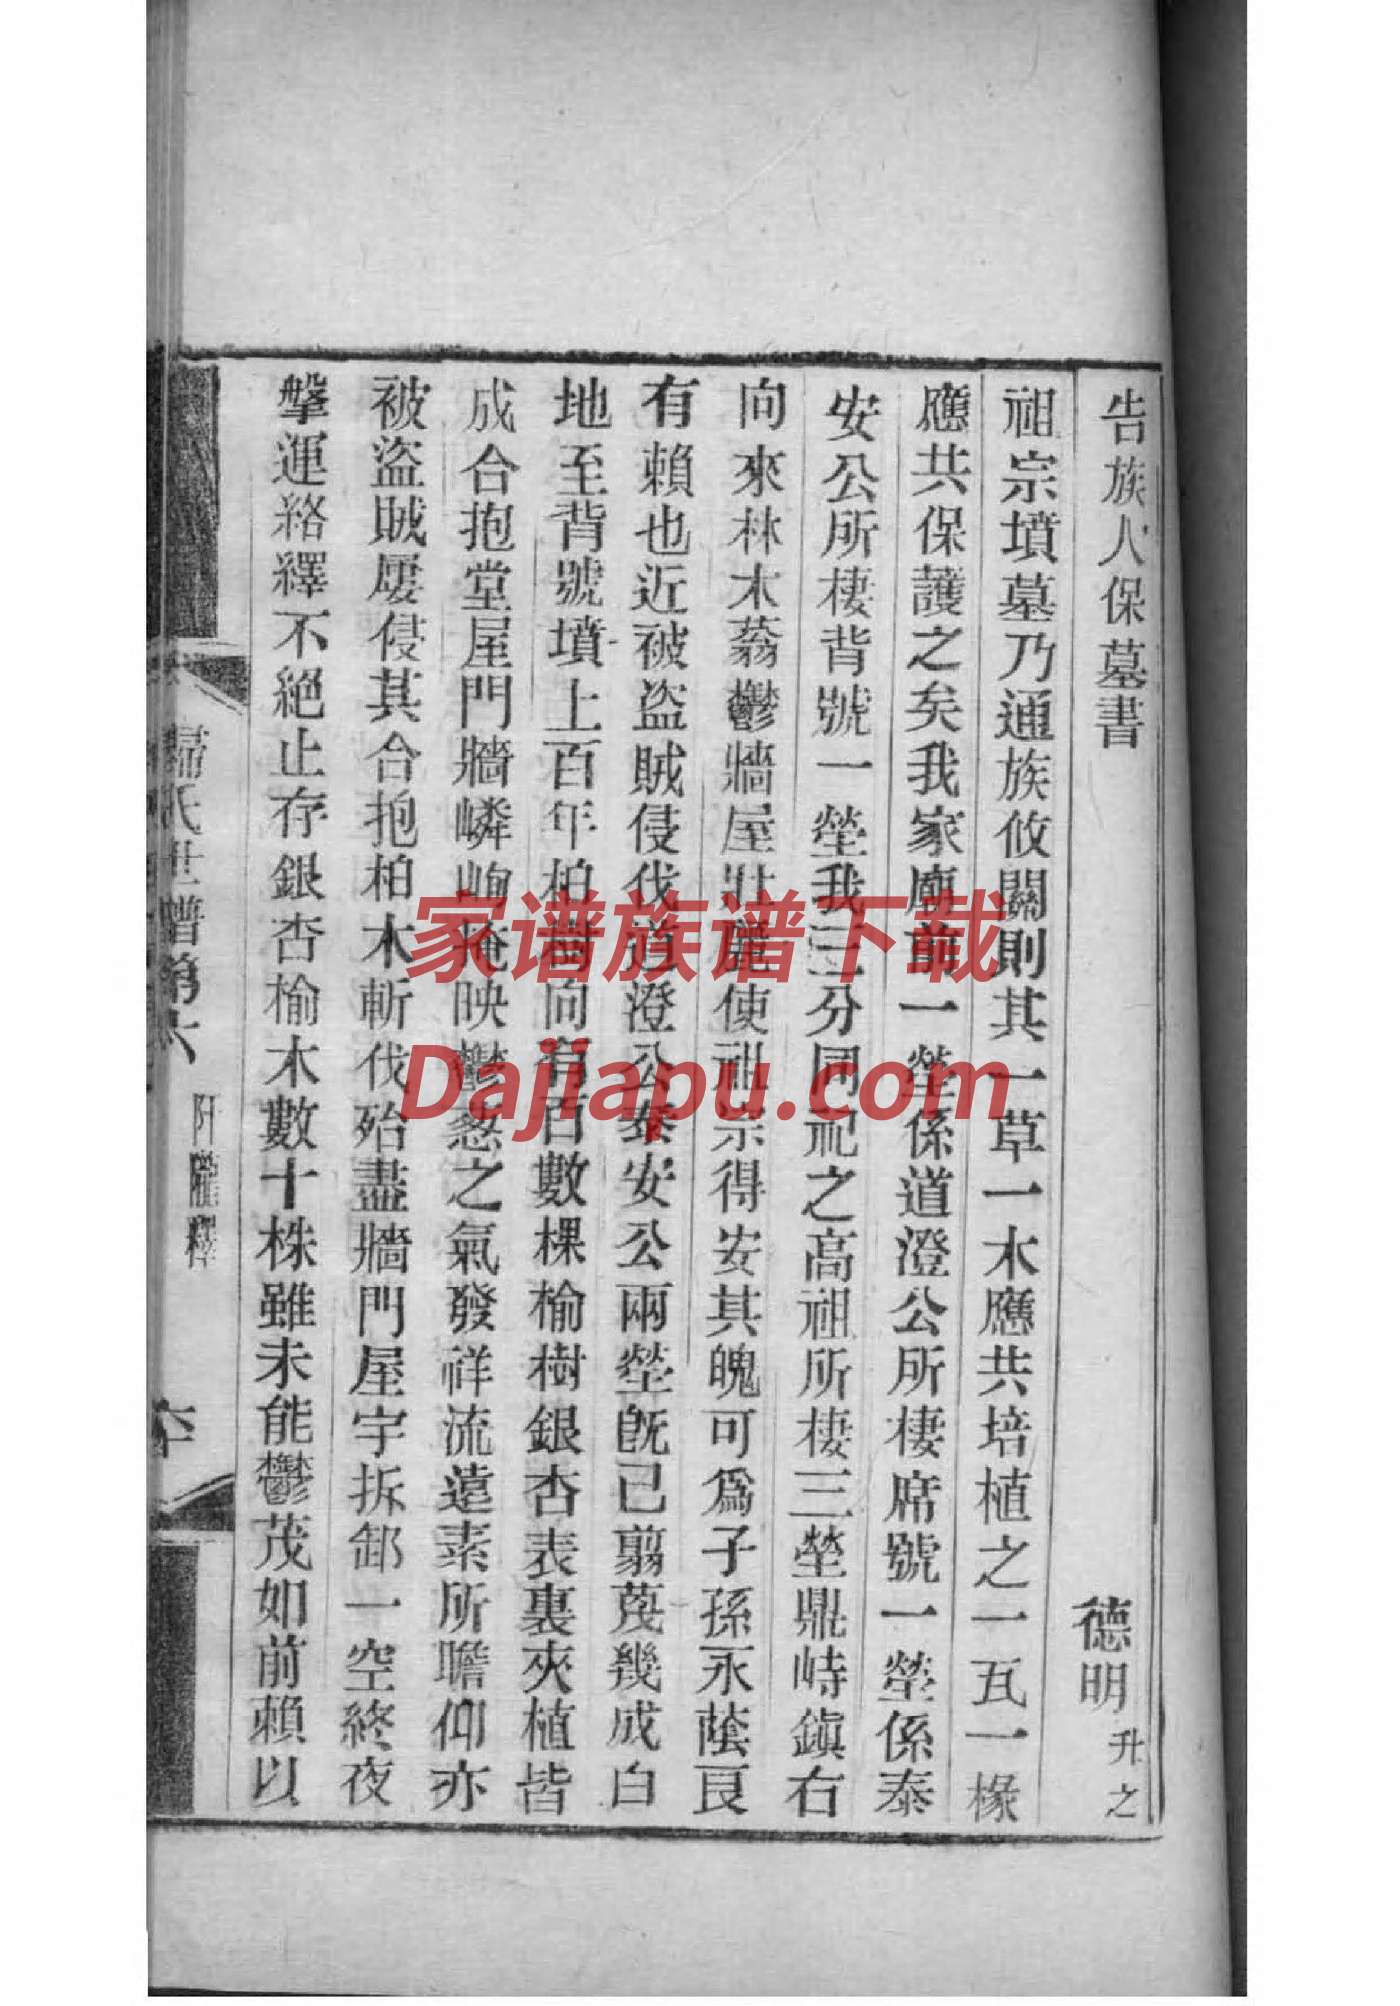 告族人保墓書 德明 升之
祖宗墳墓乃通族攸關則其一草一木應共培植之一瓦一椽
應共保護之矣我家廟前一塋係道澄公所棲席號一塋係泰
安公所棲背號一塋我三分同祀之高祖所棲三塋鼎峙鎭右
向來林木蓊鬱牆屋壯麗使祖宗得安其魄可爲子孫永蔭良
有賴也近被盜賊侵伐道澄公泰安公兩塋旣已翦蔑幾成白
地至背號墳上百年柏樹向有百數棵榆樹銀杏表裏夾植皆
成合抱堂屋門牆嶙峋掩映鬱葱之氣發祥流遠素所瞻仰亦
被盜賊屢侵其合抱柏木斬伐殆盡牆門屋宇拆卸一空終夜
搫運絡繹不絕止存銀杏榆木數十株雖未能鬱茂如前賴以
歸氏世譜第六 阡隴釋 六十
家谱族谱下载
Dajiapu.com